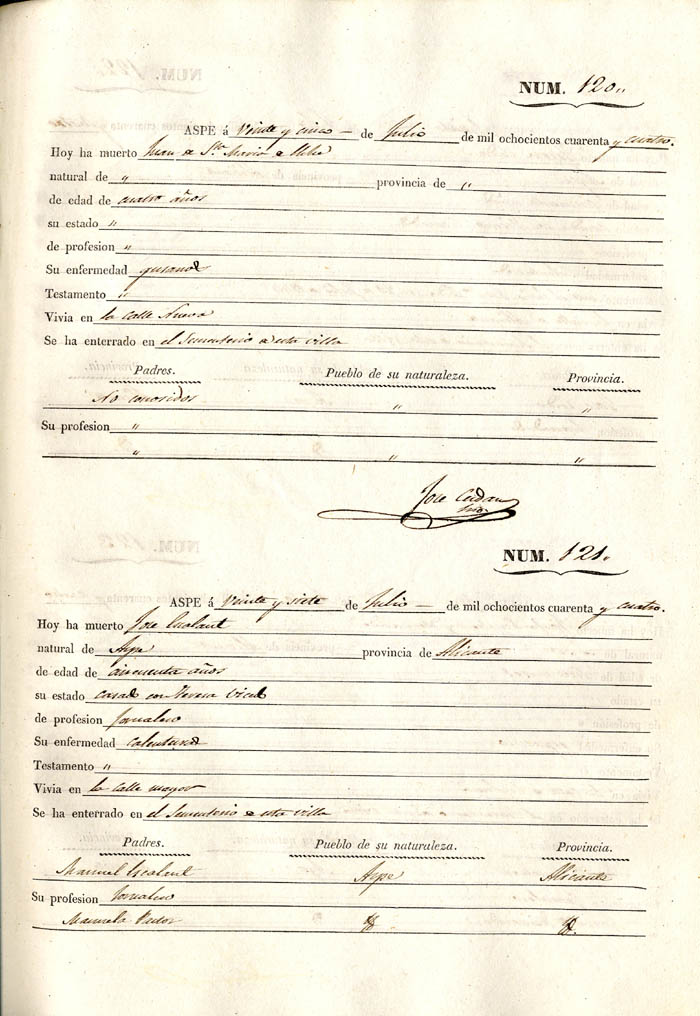 NUM. 120.
ASPE á Veinte y cinco de Julio de mil ochocientos cuarenta y cuatro.
Hoy ha muerto Juan de Sta. Maria
natural de " provincia de "
de edad de cuatro años
su estado "
de profesion "
Su enfermedad gusanos
Testamento "
Vivia en la calle Nueva
Se ha enterrado en el Sementerio de esta villa
Padres. Pueblo de su naturaleza. Provincia.
No conosidos " "
Su profesion "
" " "
Jose
NUM. 121.
ASPE á Veinte y siete de Julio de mil ochocientos cuarenta y cuatro.
Hoy ha muerto Jose Escolant
natural de Aspe provincia de Alicante
de edad de cincuenta años
su estado casado con Teresa
de profesion Jornalero
Su enfermedad calenturas
Testamento "
Vivia en la calle mayor
Se ha enterrado en el Sementerio de esta villa
Padres. Pueblo de su naturaleza. Provincia.
Manuel Escolant Aspe Alicante
Su profesion Jornalero
Manuela Pastor